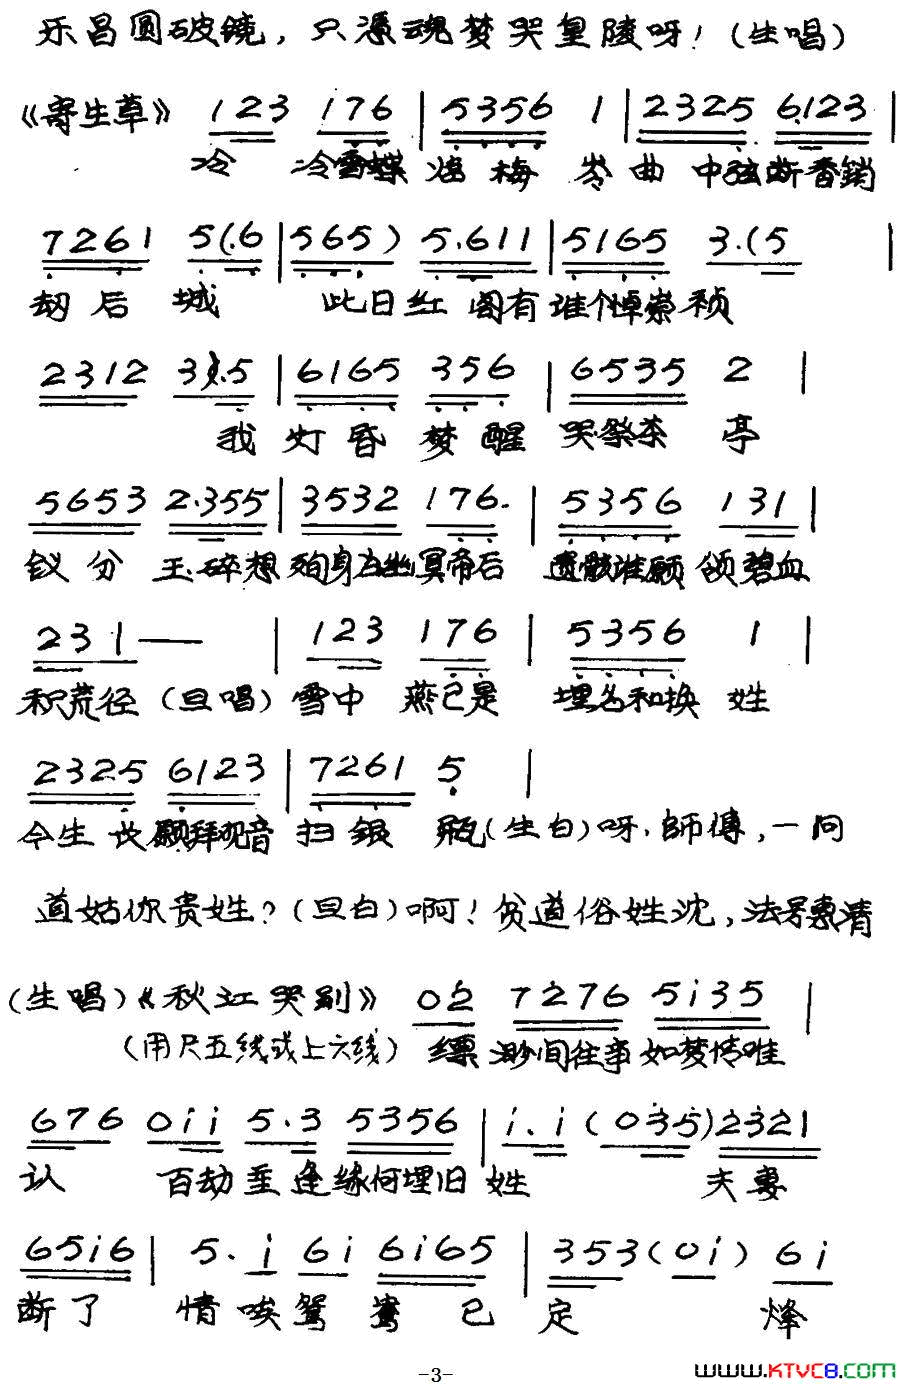 乐昌圆破镜，只凭魂梦哭皇陵呀！(生唱)
《寄生草》 123 176 | 5356 1 | 2325 6123 |
冷 冷雪蝶 梅 岑 曲 中弦断香銷
7261 5(.6 | 565) 5.611 | 5165 3.(5 |
劫后 城 此日红 阁有谁个悼崇祯
2312 3).5 | 6165 356 | 6535 2 |
我 灯昏 梦醒 哭祭茶 亭
5653 2.355 | 3532 176. | 5356 131 |
钗分 玉碎想殉身在幽冥帝后 遗骸谁愿 领碧血
231— | 123 176 | 5356 1 |
积荒径 (旦唱) 雪中 燕已是 埋名和换 姓
2325 6123 | 7261 5 |
今生 长愿拜观音 扫银 瓶(生白)呀.師傅，一问
道姑你贵姓？(旦白)啊！贫道俗姓沈，法号慧清
(生唱)《秋江哭别》 02 7276 5i35 |
(用尺五线或上六线) 缥 渺间往事如梦情难
676 0ii 5.3 5356 | i.i (035)2321
认 百劫重逢缘何埋旧 姓 夫妻
65i6 | 5.i 6i 6i65 | 353(0i) 6i
断了 情唉鸳鸯 已 定 烽
-3-
www.KTVC8.com